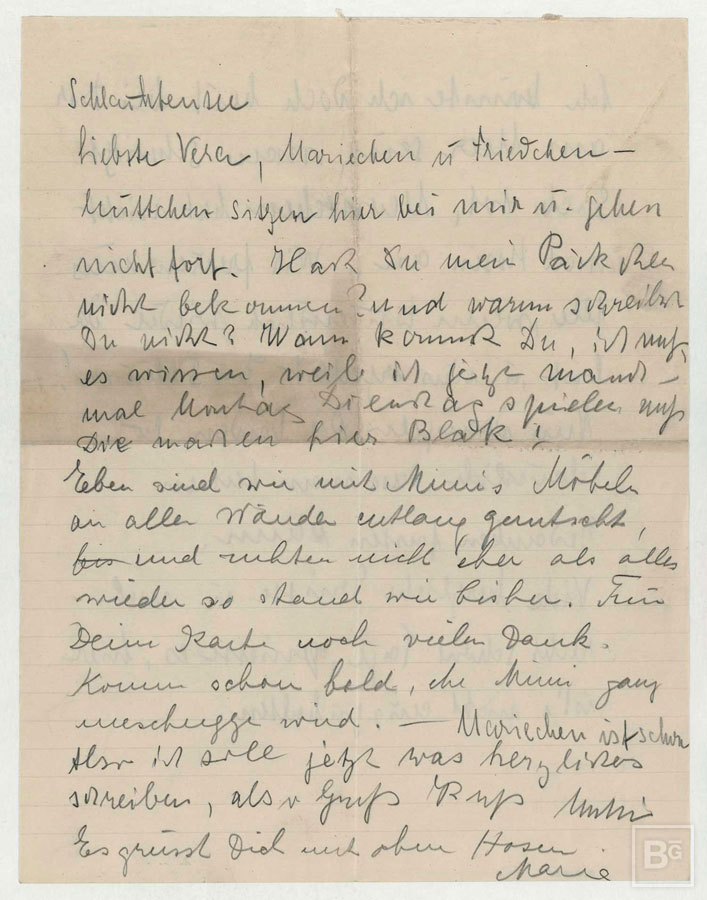 Schlachtensee
Liebste Vera, Mariechen u Friedchen –
Muttchen sitzen hier bei mir u. gehen
nicht fort. Hast Du mein Päckchen
nicht bekommen? und warum schreibst
Du nicht? Wann kommst Du, ich muß
es wissen, weil ich jetzt manch-
mal Montag Dienstag spielen muß
Die machen hier Black!
Eben sind wir mit Mimis Möbeln
an allen Wänden entlang gerutscht,
bis und ruhten nicht eher als alles
wieder so stand wie bisher. Für
Deine Karte noch vielen Dank.
Komm schon bald, ehe Mimi ganz
meschugge wird. – Mariechen ist schon
Also ich soll jetzt was herzliches
schreiben, also Gruß Kuß
Es grüsst Dich mit oben Hosen
Marie
BG